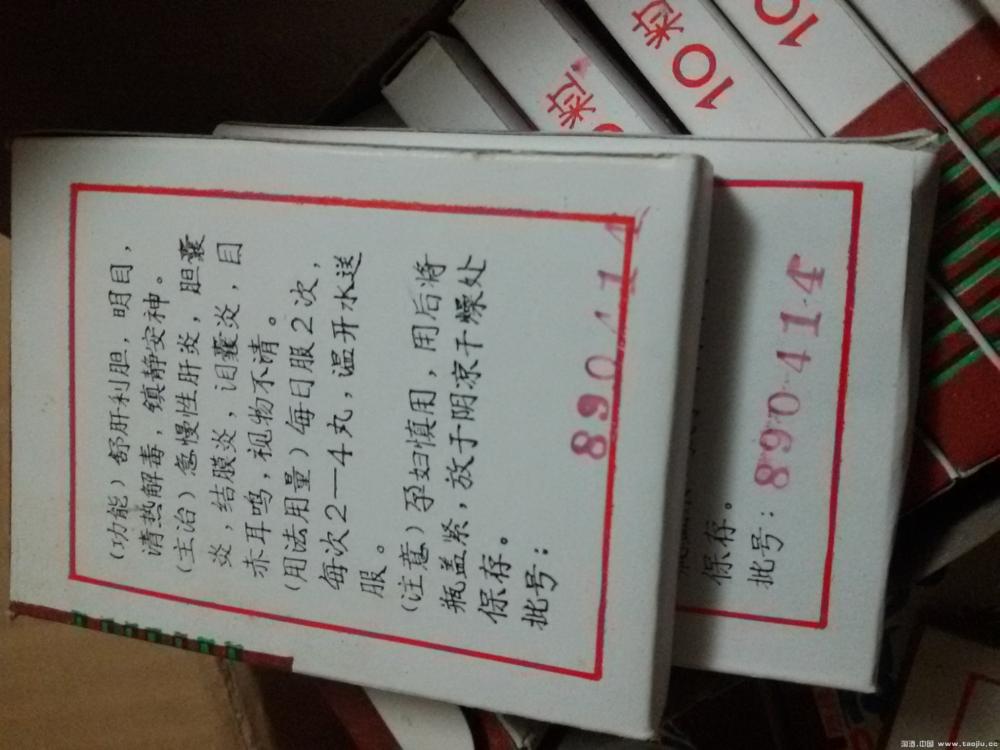 (功能)舒肝利胆，明目，
清热解毒，镇静安神。
(主治)急慢性肝炎，胆囊
炎，结膜炎，泪囊炎，目
赤耳鸣，视物不清。
(用法用量)每日服2次，
每次2—4丸，温开水送
服。
(注意)孕妇慎用，用后将
瓶盖紧，放于阴凉干燥处
保存。
批号：
890414
保存。
批号：890414
粒
10粒
10
淘酒.中国 www.taojiu.cc